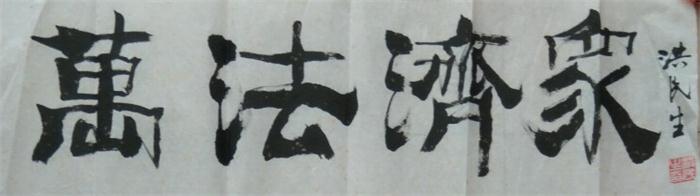 萬法濟衆
洪民生